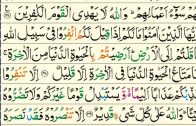 لَهُمْ سُوٓءُ اَعْمَالِهِمْ ؕ وَاللّٰهُ لَا يَهْدِى الْقَوْمَ الْكٰفِرِيْنَ
اٰمَنُوْا مَا لَكُمْ اِذَا قِيْلَ لَكُمُ انْفِرُوْا فِىْ سَبِيْلِ اللّٰهِ
اِلَى الْاَرْضِ ؕ اَرَضِيْتُمْ بِالْحَيٰوةِ الدُّنْيَا مِنَ الْاٰخِرَةِ ۚ
مَتَاعُ الْحَيٰوةِ الدُّنْيَا فِى الْاٰخِرَةِ اِلَّا قَلِيْلٌ اِلَّا تَنْفِرُوْا
عَذَابًا اَلِيْمًا ۙ وَّيَسْتَبْدِلْ قَوْمًا غَيْرَكُمْ وَلَا تَضُرُّوْهُ
وَاللّٰهُ عَلٰى كُلِّ شَىْءٍ قَدِيْرٌ اِلَّا تَنْصُرُوْهُ فَقَدْ نَصَرَهُ